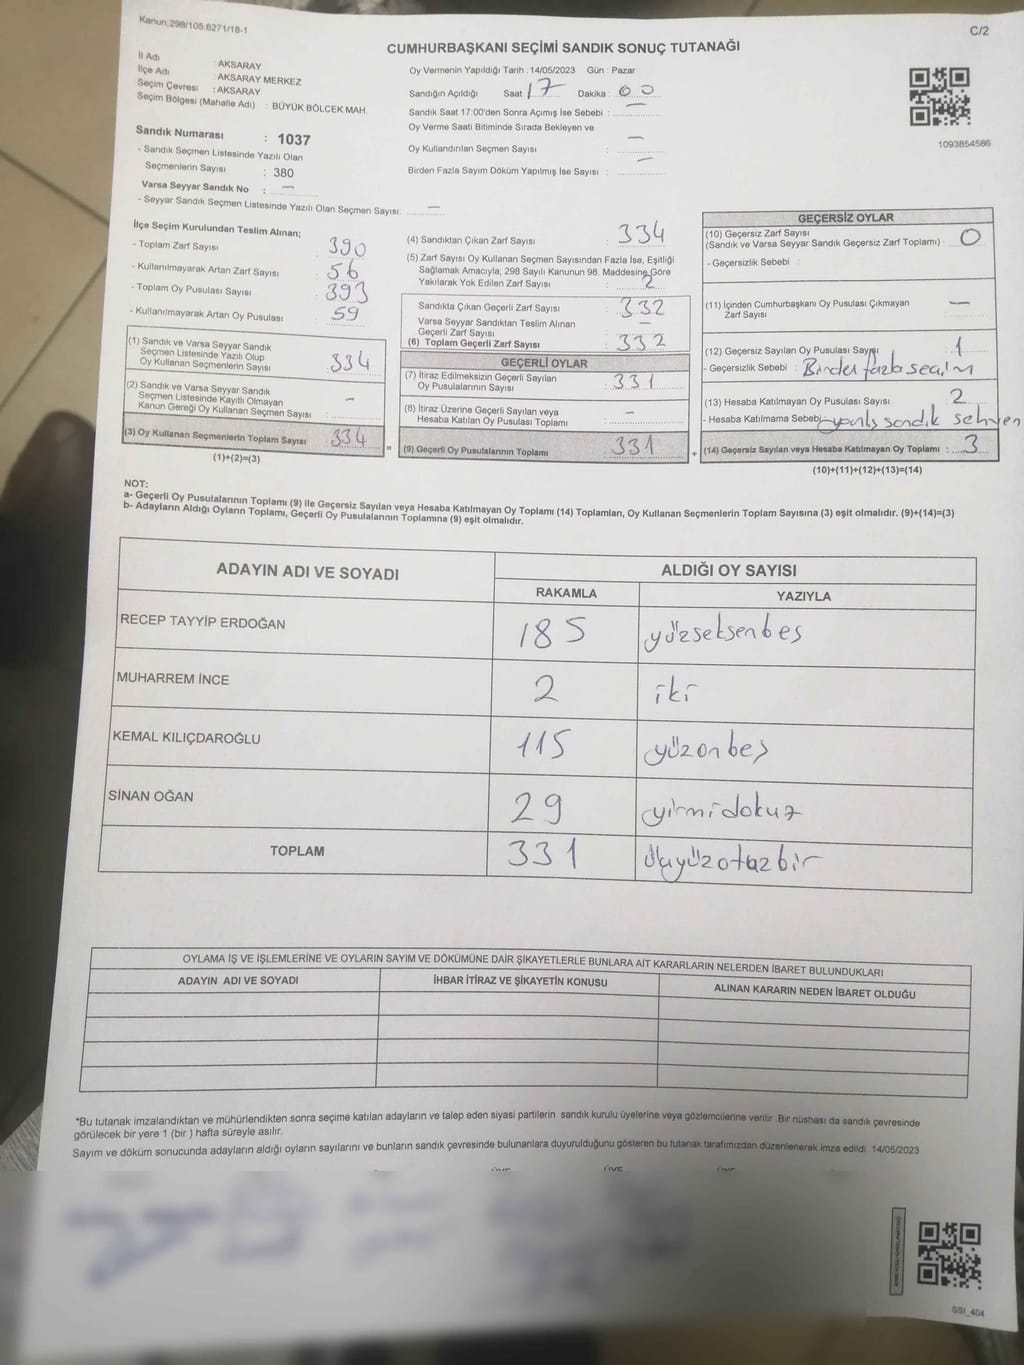 Kanun:298/105.6271/18-1
C/2
CUMHURBAŞKANI SEÇİMİ SANDIK SONUÇ TUTANAĞI
İl Adı : AKSARAY
İlçe Adı : AKSARAY MERKEZ
Seçim Çevresi : AKSARAY
Seçim Bölgesi (Mahalle Adı) : BÜYÜK BÖLCEK MAH.
Sandık Numarası : 1037
- Sandık Seçmen Listesinde Yazılı Olan
Seçmenlerin Sayısı : 380
Varsa Seyyar Sandık No : —
- Seyyar Sandık Seçmen Listesinde Yazılı Olan Seçmen Sayısı: —
Oy Vermenin Yapıldığı Tarih : 14/05/2023 Gün : Pazar
Sandığın Açıldığı Saat 17 Dakika : 00
Sandık Saat 17:00'den Sonra Açımış İse Sebebi : —
Oy Verme Saati Bitiminde Sırada Bekleyen ve
Oy Kullandırılan Seçmen Sayısı : —
Birden Fazla Sayım Döküm Yapılmış İse Sayısı : —
1093854586
İlçe Seçim Kurulundan Teslim Alınan;
- Toplam Zarf Sayısı : 390
- Kullanılmayarak Artan Zarf Sayısı : 56
- Toplam Oy Pusulası Sayısı : 393
- Kullanılmayarak Artan Oy Pusulası : 59
(1) Sandık ve Varsa Seyyar Sandık
Seçmen Listesinde Yazılı Olup
Oy Kullanan Seçmenlerin Sayısı : 334
(2) Sandık ve Varsa Seyyar Sandık
Seçmen Listesinde Kayıtlı Olmayan
Kanun Gereği Oy Kullanan Seçmen Sayısı : —
(3) Oy Kullanan Seçmenlerin Toplam Sayısı : 334
(1)+(2)=(3)
(4) Sandıktan Çıkan Zarf Sayısı : 334
(5) Zarf Sayısı Oy Kullanan Seçmen Sayısından Fazla İse, Eşitliği
Sağlamak Amacıyla, 298 Sayılı Kanunun 98. Maddesine Göre
Yakılarak Yok Edilen Zarf Sayısı : 2
Sandıkta Çıkan Geçerli Zarf Sayısı : 332
Varsa Seyyar Sandıktan Teslim Alınan
Geçerli Zarf Sayısı : —
(6) Toplam Geçerli Zarf Sayısı : 332
GEÇERLİ OYLAR
(7) İtiraz Edilmeksizin Geçerli Sayılan
Oy Pusulalarının Sayısı : 331
(8) İtiraz Üzerine Geçerli Sayılan veya
Hesaba Katılan Oy Pusulası Toplamı : —
= (9) Geçerli Oy Pusulalarının Toplamı : 331 +
GEÇERSİZ OYLAR
(10) Geçersiz Zarf Sayısı
(Sandık ve Varsa Seyyar Sandık Geçersiz Zarf Toplamı) : 0
- Geçersizlik Sebebi :
(11) İçinden Cumhurbaşkanı Oy Pusulası Çıkmayan
Zarf Sayısı : —
(12) Geçersiz Sayılan Oy Pusulası Sayısı : 1
- Geçersizlik Sebebi : Birden fazla seçim
(13) Hesaba Katılmayan Oy Pusulası Sayısı : 2
- Hesaba Katılmama Sebebi : yanlış sandık
(14) Geçersiz Sayılan veya Hesaba Katılmayan Oy Toplamı : 3
(10)+(11)+(12)+(13)=(14)
NOT:
a- Geçerli Oy Pusulalarının Toplamı (9) ile Geçersiz Sayılan veya Hesaba Katılmayan Oy Toplamı (14) Toplamları, Oy Kullanan Seçmenlerin Toplam Sayısına (3) eşit olmalıdır. (9)+(14)=(3)
b- Adayların Aldığı Oyların Toplamı, Geçerli Oy Pusulalarının Toplamına (9) eşit olmalıdır.
ADAYIN ADI VE SOYADI ALDIĞI OY SAYISI
RAKAMLA YAZIYLA
RECEP TAYYİP ERDOĞAN 185 yüzseksenbeş
MUHARREM İNCE 2 iki
KEMAL KILIÇDAROĞLU 115 yüzonbeş
SİNAN OĞAN 29 yirmidokuz
TOPLAM 331 üçyüzotuzbir
OYLAMA İŞ VE İŞLEMLERİNE VE OYLARIN SAYIM VE DÖKÜMÜNE DAİR ŞİKAYETLERLE BUNLARA AİT KARARLARIN NELERDEN İBARET BULUNDUKLARI
ADAYIN ADI VE SOYADI İHBAR İTİRAZ VE ŞİKAYETİN KONUSU ALINAN KARARIN NEDEN İBARET OLDUĞU
*Bu tutanak imzalandıktan ve mühürlendikten sonra seçime katılan adayların ve talep eden siyasi partilerin sandık kurulu üyelerine veya gözlemcilerine verilir .Bir nüshası da sandık çevresinde
görülecek bir yere 1 (bir ) hafta süreyle asılır.
Sayım ve döküm sonucunda adayların aldığı oyların sayılarını ve bunların sandık çevresinde bulunanlara duyurulduğunu gösteren bu tutanak tarafımızdan düzenlenerek imza edildi 14/05/2023
SSI_404